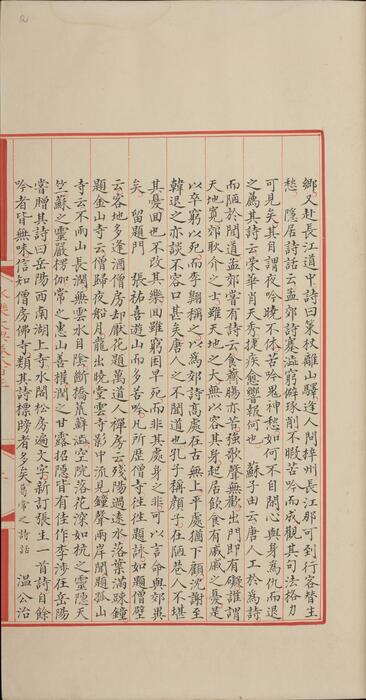 鄉又赴長江道中詩曰策杖離山驛逢人問梓州長江那可到行客替生
愁 隱居詩話云孟郊詩蹇澁窮僻琢削不暇苦吟而成觀其句法格力
可見矣其自謂夜吟曉不休苦吟鬼神愁如何不自閑心與身為仇而退
之薦其詩云榮華肖天秀捷疾愈響報何也 蘇子由云唐人工於為詩
而陋於聞道孟郊嘗有詩云食薺腸亦苦強歌聲無歡出門即有礙誰謂
天地寬郊耿介之士雖天地之大無以容其身起居飲食有戚戚之憂是
以卒窮以死而李翱稱之以為郊詩高處在古無上平處猶下顧沈謝至
韓退之亦談不容口甚矣唐人之不聞道也孔子稱顏子在陋巷人不堪
其憂回也不改其樂回雖窮困早死而非其處身之非可以言命與郊異
矣 留題門 張祜喜遊山而多苦吟凡所歷僧寺往往題詠如題僧壁
云客地多逢酒僧房却厭花題萬道人禪房云殘陽過遠水落葉滿踈鐘
題金山寺云僧歸夜船月龍出曉堂雲寺影中流見鐘聲兩岸聞題孤山
寺云不雨山長潤無雲水自陰斷橋荒蘚澁空院落花深如杭之靈隱天
竺蘇之靈巖楞伽常之惠山善權潤之甘露招隱皆有佳作李涉在岳陽
嘗贈其詩曰岳陽西南湖上寺水閣松房遍文字新訂張生一首詩自餘
吟著皆無味信知僧房佛寺類其詩標牓者多矣 溫公治